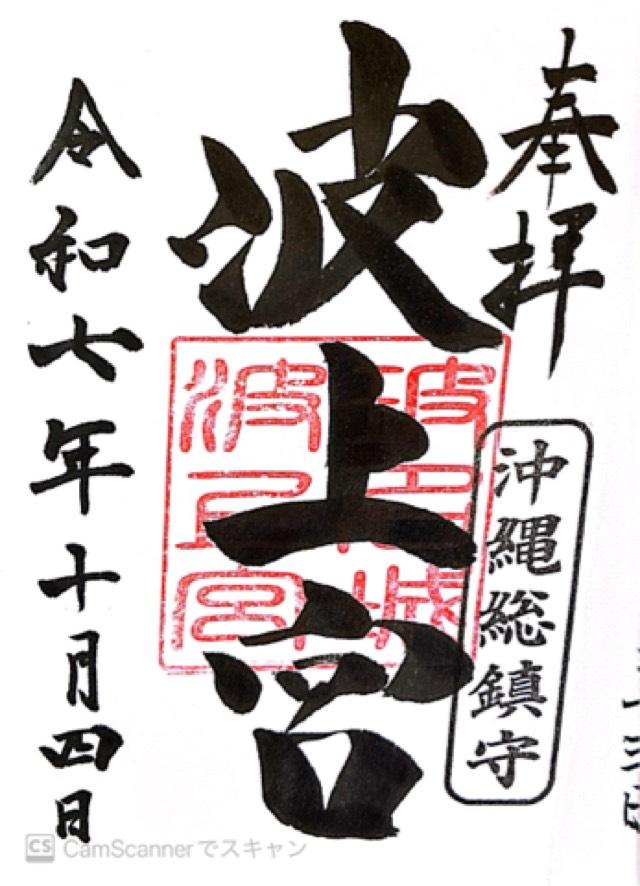 奉拝
沖縄総鎮守
波上宮
波上宮
令和七年十月四日
CS CamScannerでスキャン